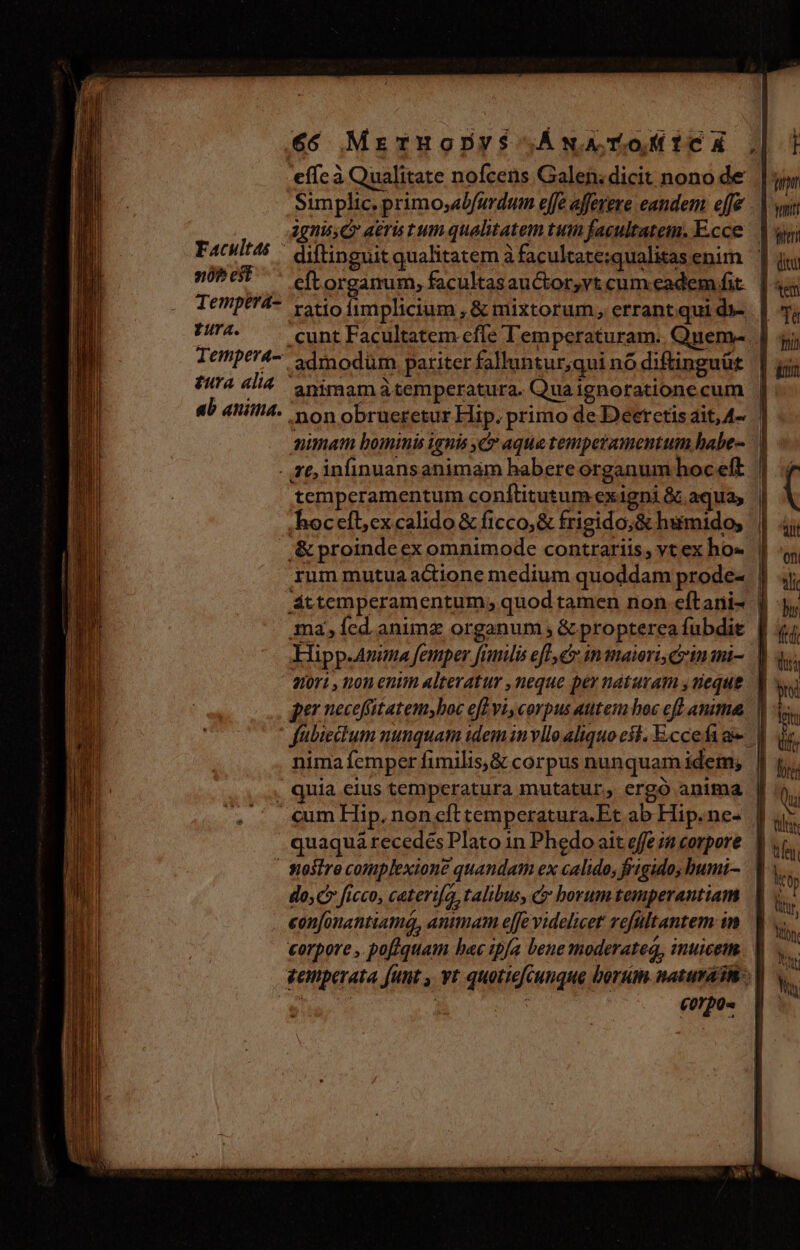 66 METHODVS ANATOMICA
esse à Qualitate noscens Galen. dicit nono de
Simplic. primo, absurdum esse asserere eandem esse
ignis, & aëris tum qualitatem tum facultatem. Ecce
Facultas nõ est Temperatura. Tempera- tura alia ab anima.
distinguit qualitatem à facultate: qualitas enim
est organum, facultas auctor, vt cum eadem sit
ratio simplicium, & mixtorum, errant qui di-
cunt Facultatem esse Temperaturam. Quem-
admodũm pariter falluntur, qui nõ distinguũt
animam à temperatura. Qua ignoratione cum
non obrueretur Hip. primo de Decretis ait, A-
nimam hominis ignis, & aquæ temperamentum habe-
re, insinuans animam habere organum hoc est
temperamentum constitutum ex igni & aqua,
hoc est, ex calido & sicco, & frigido, & humido,
& proinde ex omnimode contrariis, vt ex ho-
rum mutua actione medium quoddam prode-
at temperamentum, quod tamen non est ani-
ma, sed animæ organum, & propterea subdit
Hipp. Anima semper similis est, & in maiori, & in mi-
nori, non enim alteratur, neque per naturam, neque
per necessitatem, hoc est vi, corpus autem hoc est animæ
subiectum nunquam idem in vllo aliquo est. Ecce si a-
nima semper similis, & corpus nunquam idem,
quia eius temperatura mutatur, ergò anima
cum Hip. non est temperatura. Et ab Hip. ne-
quaquã recedẽs Plato in Phędo ait esse in corpore
nostro complexionẽ quandam ex calido, frigido, humi-
do, & sicco, cæterisq; talibus, & horum temperantiam
consonantiamq́;, animam esse videlicet resultantem in
corpore, postquam hæc ipsa bene moderateq́;, inuicem
temperata sunt, vt quotiescunque horum naturâ in
corpo-